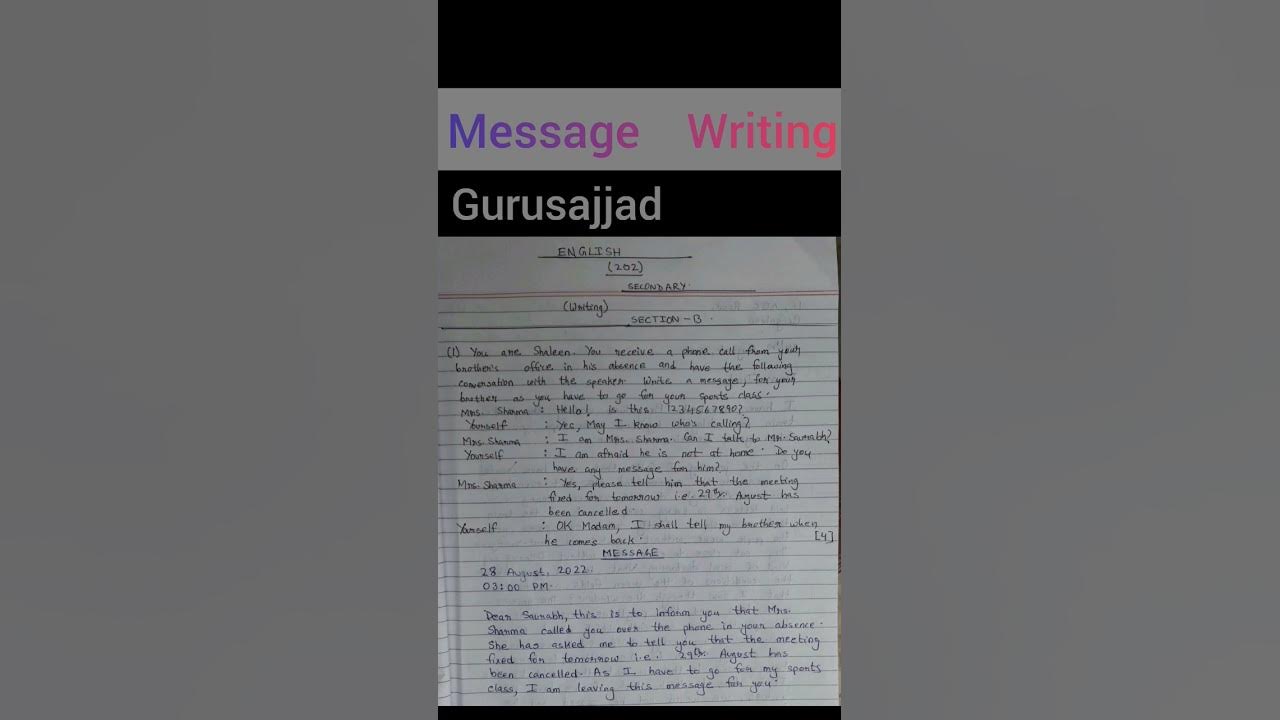 Message Writing
Gurusajjad
ENGLISH
(202)
SECONDARY.
(Writing)
SECTION-B.
(1) You are Shaleen. You receive a phone call from your
brother's office in his absence and have the following
conversation with the speaker. Write a message, for your
brother as you have to go for your sports class.
Mrs. Sharma : Hello! is this 1234567890?
Yourself : Yes, May I know who's calling?
Mrs. Sharma : I am Mrs. Sharma. Can I talk to Mr. Saurabh?
Yourself : I am afraid he is not at home. Do you
have any message for him?
Mrs. Sharma : Yes, please tell him that the meeting
fixed for tomorrow i.e. 29th August has
been cancelled.
Yourself : OK Madam, I shall tell my brother when
he comes back. [4]
MESSAGE
28 August, 2022.
03:00 PM.
Dear Saurabh, this is to inform you that Mrs.
Sharma called you over the phone in your absence.
She has asked me to tell you that the meeting
fixed for tomorrow i.e. 29th August has
been cancelled. As I have to go for my sports
class, I am leaving this message for you.